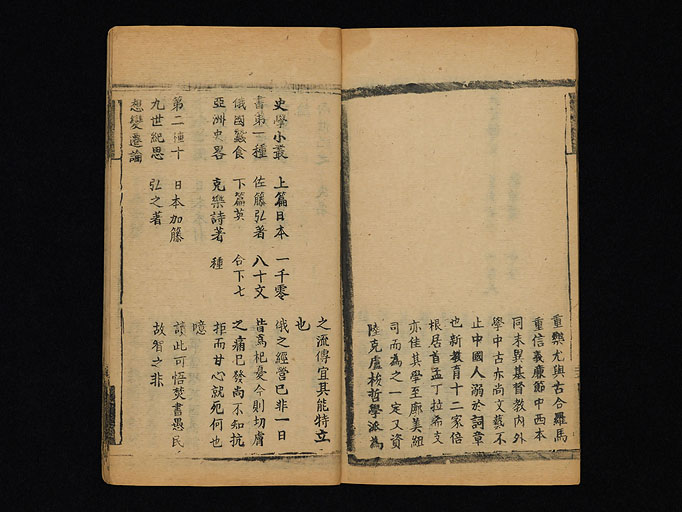 重樂尤與古合羅馬
重信義廉節中西本
同末異基督教內外
學中古亦尚文藝不
止中國人溺於詞章
也新教育十二家倍
根居首孟丁拉希支
亦佳其學至廓美紐
司而為之一定又資
陸克盧梭哲學派為
之流傳宜其能特立
也
史學小叢 上篇日本 一千零 俄之經營已非一日
書第一種 佐藤弘著 八十文 皆為杞憂今則切膚
俄國蠶食 下篇英 合下七 之痛已發尚不知抗
亞洲史畧 克樂詩著 種 拒而甘心就死何也
噫
第二種十 日本加藤 讀此可悟焚書愚民
九世紀思 弘之著 故智之非
想變遷論